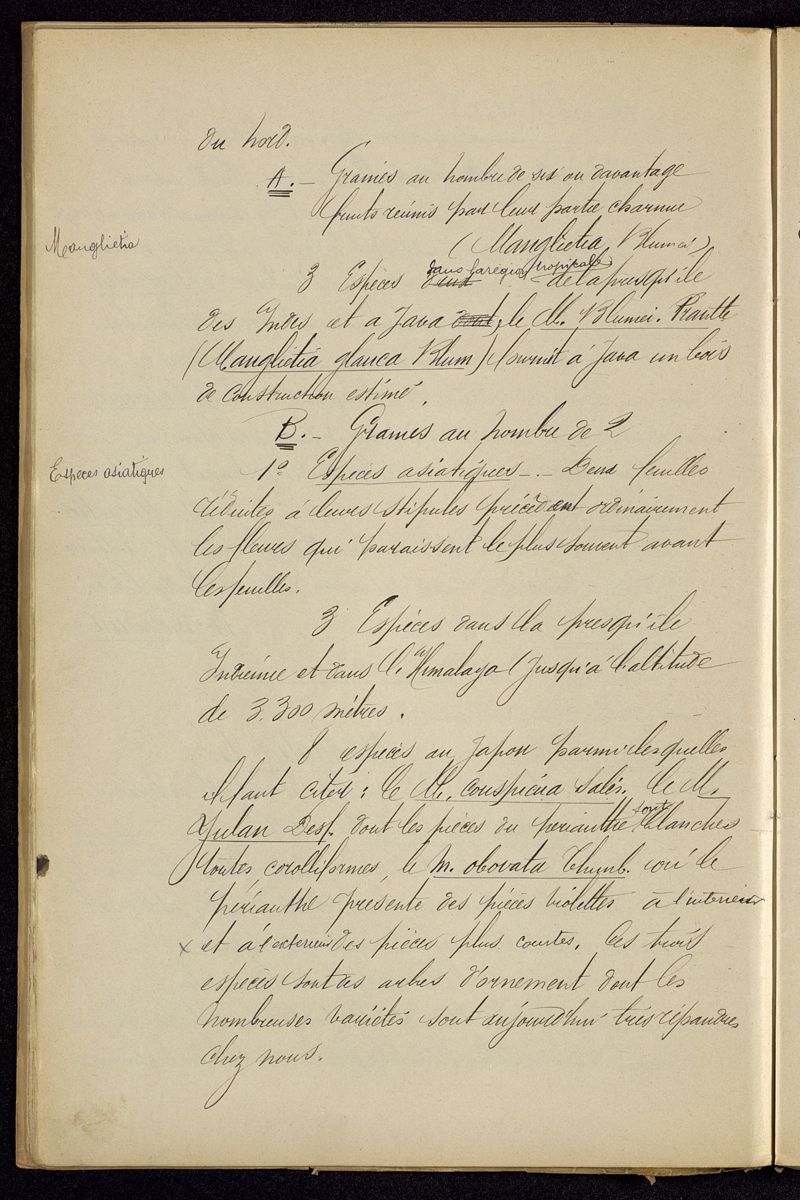 du Nord.
A. — Graines au nombre de six ou davantage
fruits réunis par leur partie charnue
Manglietia
(Manglietia, Blumei)
dans la région tropicale
3 Espèces de la presqu'île
des Indes et à Java, le M. Blumei. Prantte
(Manglietia glauca Blum) fournit à Java un bois
de construction estimé.
B. — Graines au nombre de 2
Especes asiatiques
1º Espèces asiatiques. — Deux feuilles
réduites à leurs stipules précèdent ordinairement
les fleurs qui paraissent le plus souvent avant
les feuilles.
3 Espèces dans la presqu'ile
Indienne et dans l'Himalaya (jusqu'à l'altitude
de 3.300 mètres.
8 espèces au Japon parmi lesquelles
il faut citer : le M. conspicua Salis. le M.
Yulan Desf. dont les pièces du périanthe sont blanches
toutes corolliformes, le M. obovata Thunb. où le
périanthe présente des pièces violettes à l'intérieur
x et à l'extérieur des pièces plus courtes. Ces trois
espèces sont des arbres d'ornement dont les
nombreuses variétés sont aujourd'hui très répandues
chez nous.